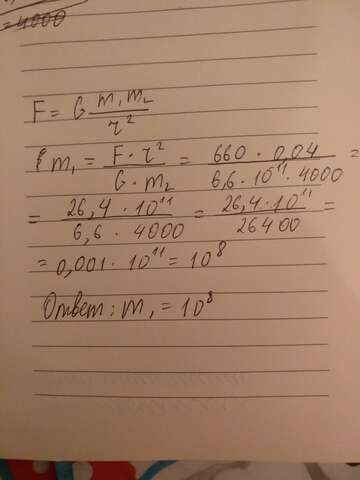 =4000
F = G m₁m₂/r²
m₁ = F · r²/G · m₂ = 660 · 0,04/6,6 · 10¹¹ · 4000 =
= 26,4 · 10¹¹/6,6 · 4000 = 26,4 · 10¹¹/26400 =
= 0,001 · 10¹¹ = 10⁸
Ответ: m₁ = 10⁸